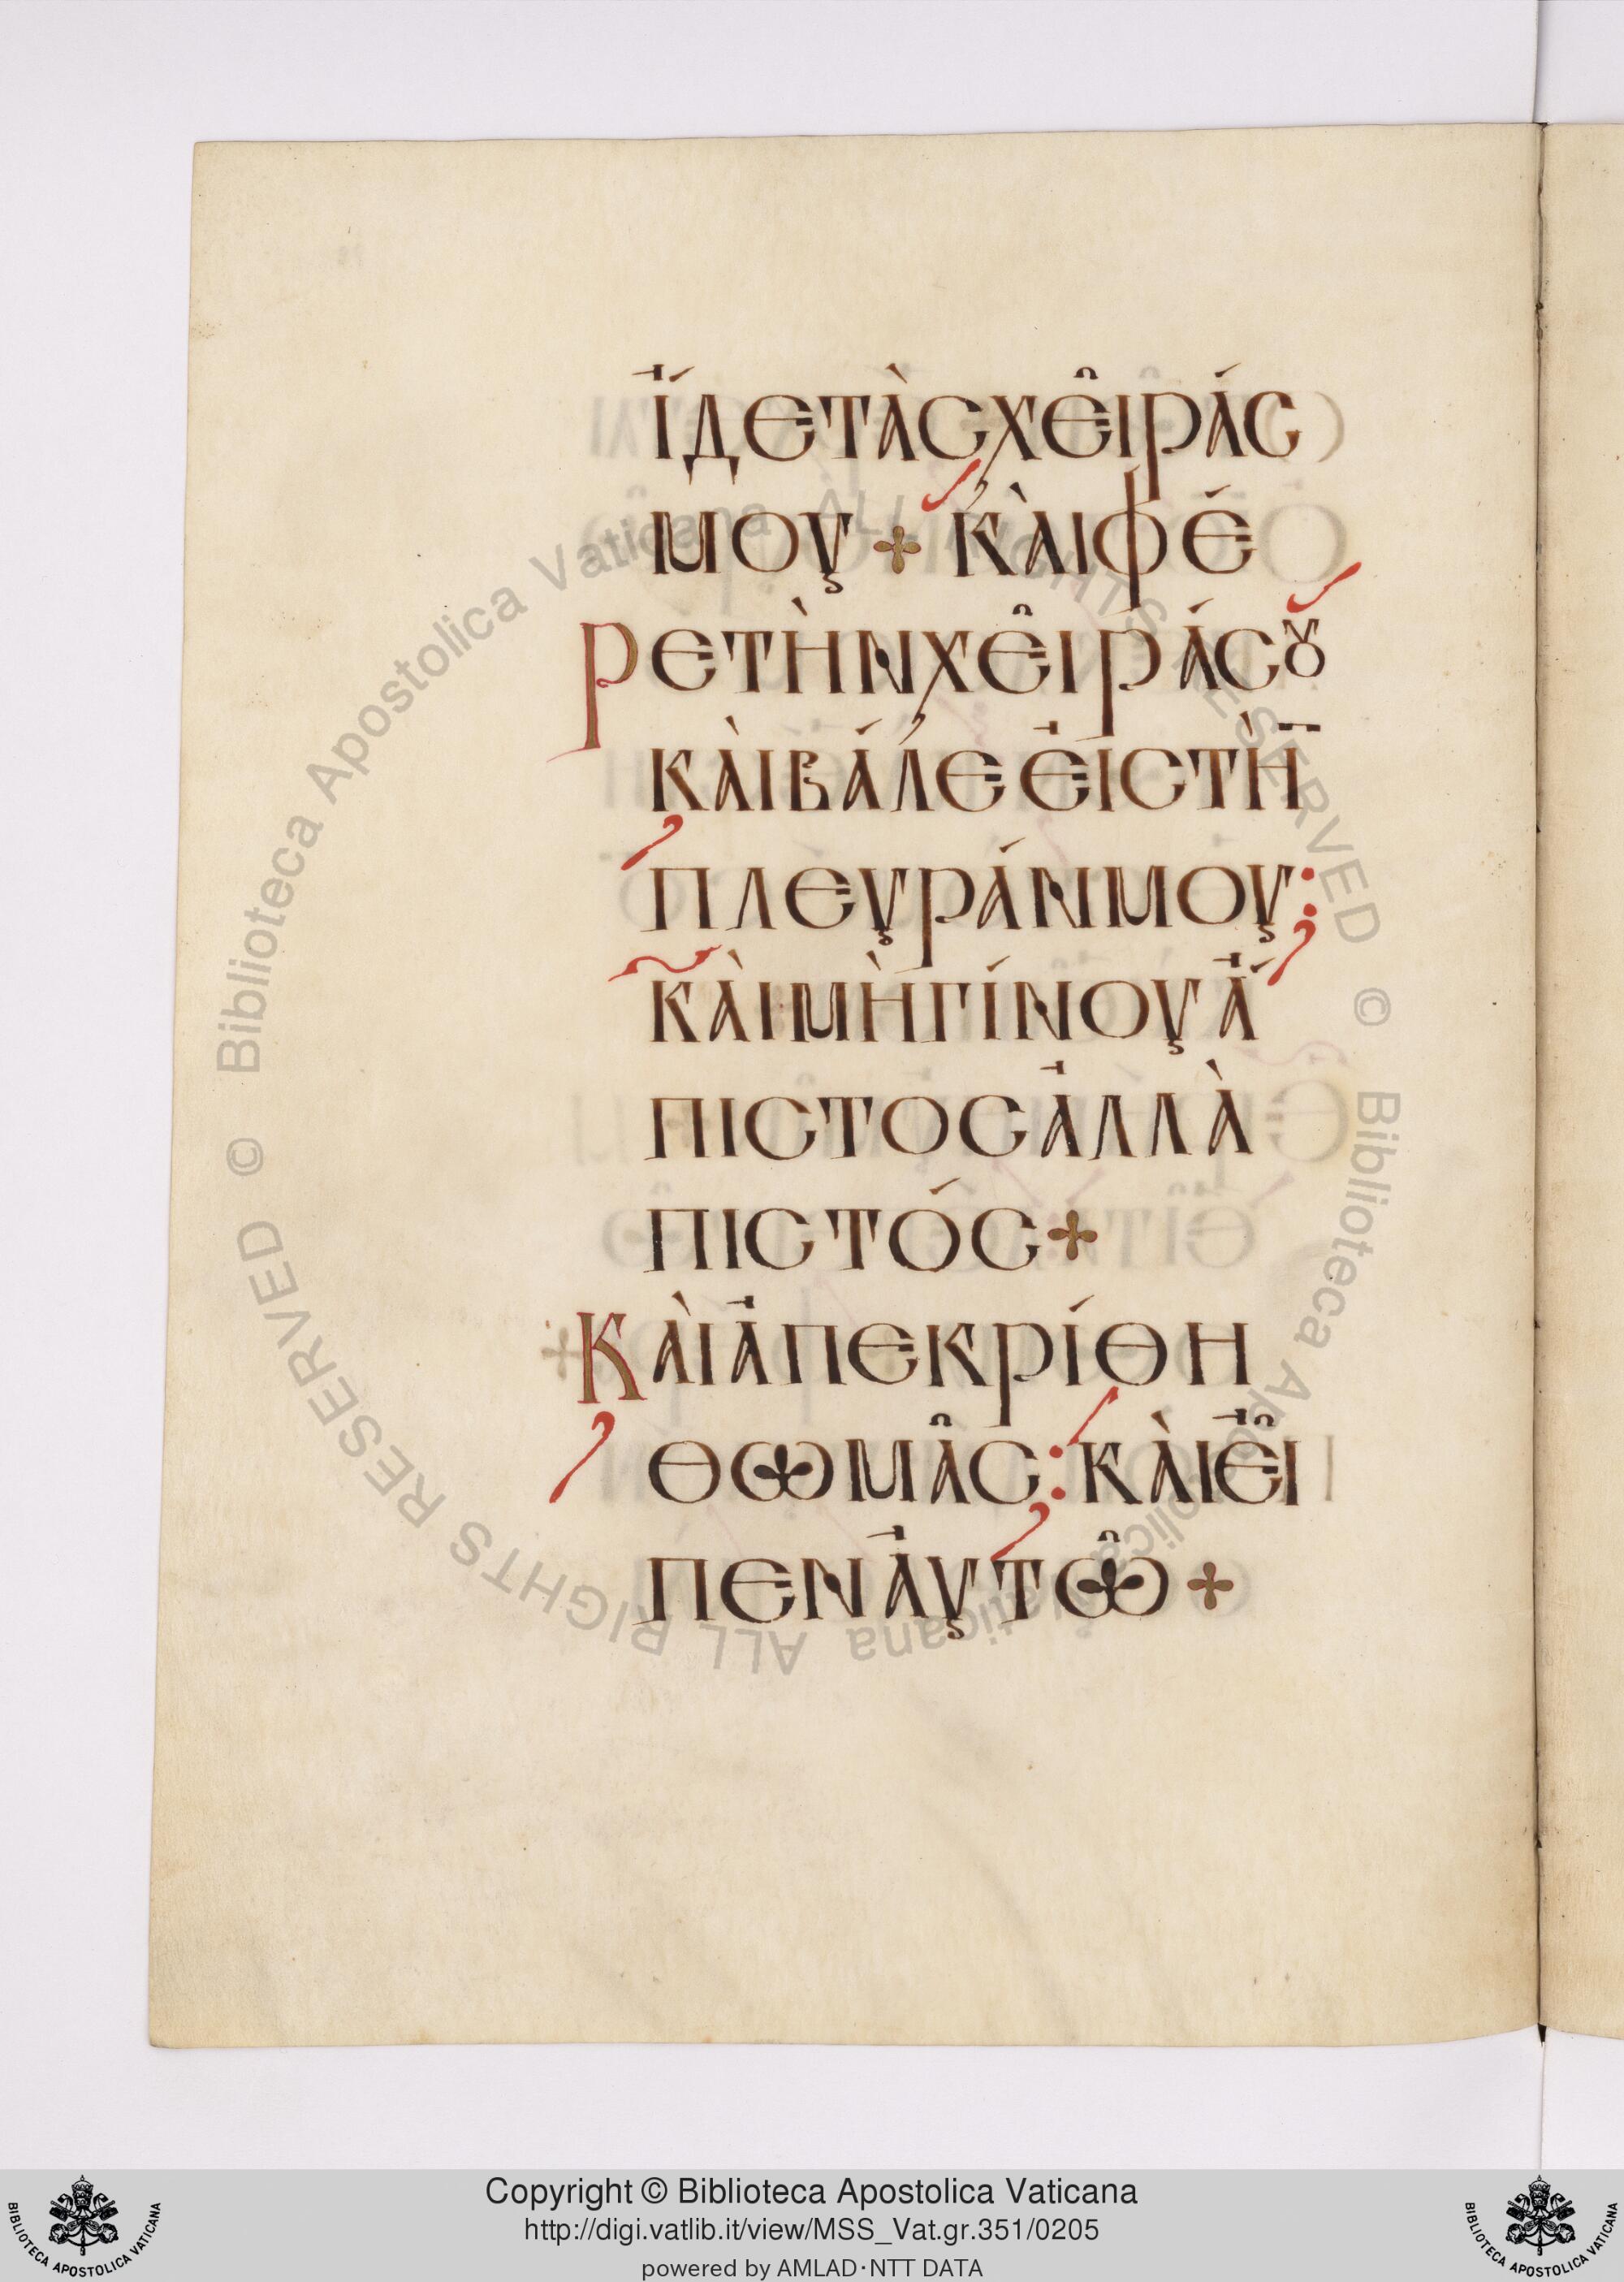 ἴδε τὰς χεῖράς
μου + καὶ φέ
ρε τὴν χεῖρά σȣ
καὶ βάλε εἰς τὴ̅
πλευράν μου:
καὶ μὴ γίνου ἄ
πιστος ἀλλὰ
πιστός +
Καὶ ἀπεκρίθη
θωμᾶς: καὶ εἶ
πεν ἀυτῶ +
© Biblioteca Apostolica Vaticana ALL RIGHTS RESERVED © Biblioteca Apostolica Vaticana ALL RIGHTS RESERVED
Copyright © Biblioteca Apostolica Vaticana
http://digi.vatlib.it/view/MSS_Vat.gr.351/0205
powered by AMLAD·NTT DATA
BIBLIOTECA APOSTOLICA VATICANA
BIBLIOTECA APOSTOLICA VATICANA